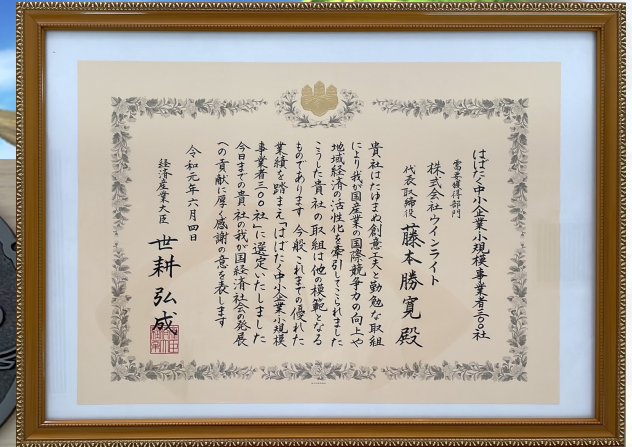 はばたく中小企業小規模事業者三〇〇社
需要獲得部門
株式会社ウインライト
代表取締役 藤本勝寛 殿
貴社はたゆまぬ創意工夫と勤勉な取組
により我が国産業の国際競争力の向上や
地域経済の活性化を牽引してこられました
こうした貴社の取組は他の模範となる
ものであります 今般これまでの優れた
業績を踏まえ「はばたく中小企業小規模
事業者三〇〇社」に選定いたしました
今日までの貴社の我が国経済社会の発展
への貢献に厚く感謝の意を表します
令和元年六月四日
経済産業大臣 世耕弘成